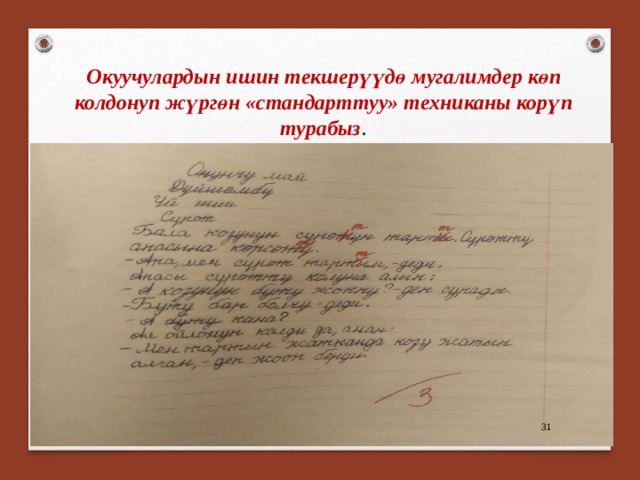 Окуучулардын ишин текшерүүдө мугалимдер көп
колдонуп жүргөн «стандарттуу» техниканы корүп
турабыз.
Онунчу май
Дүйшөмбү
Үй иши
Сүрөт
Бала козунун сүрөтүн тартты. Сүрөттү
апасына көрсөттү.
- Апа, мен сүрөт тарттым, - деди.
Апасы сүрөттү колуна алып:
- А козунун буту жокпу? - деп сурады.
- Буту бар болчу - деди.
- А буту кана?
Ал ойлонуп калды да, анан:
- Мен тартып жатканда козу жатып
алган, - деп жооп берди.
3
31